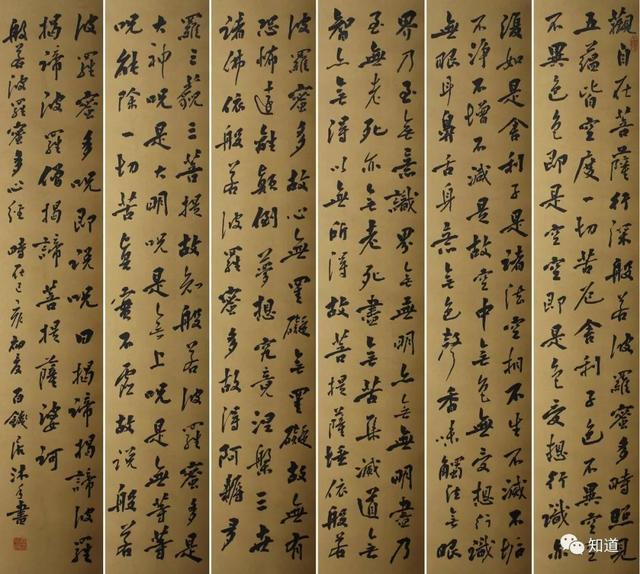 觀自在菩薩行深般若波羅蜜多時照見
五蘊皆空度一切苦厄舍利子色不異空空
不異色色即是空空即是色受想行識亦
復如是舍利子是諸法空相不生不滅不垢
不淨不增不減是故空中無色無受想行識
無眼耳鼻舌身意無色聲香味觸法無眼
界乃至無意識界無無明亦無無明盡乃
至無老死亦無老死盡無苦集滅道無
智亦無得以無所得故菩提薩埵依般若
波羅蜜多故心無罣礙無罣礙故無有
恐怖遠離顛倒夢想究竟涅槃三世
諸佛依般若波羅蜜多故得阿耨多
羅三藐三菩提故知般若波羅蜜多是
大神呪是大明呪是無上呪是無等等
呪能除一切苦真實不虛故說般若
波羅蜜多呪即說呪曰揭諦揭諦波羅
揭諦波羅僧揭諦菩提薩婆訶
般若波羅蜜多心經 時在己亥初夏百錢居沐手書
知道